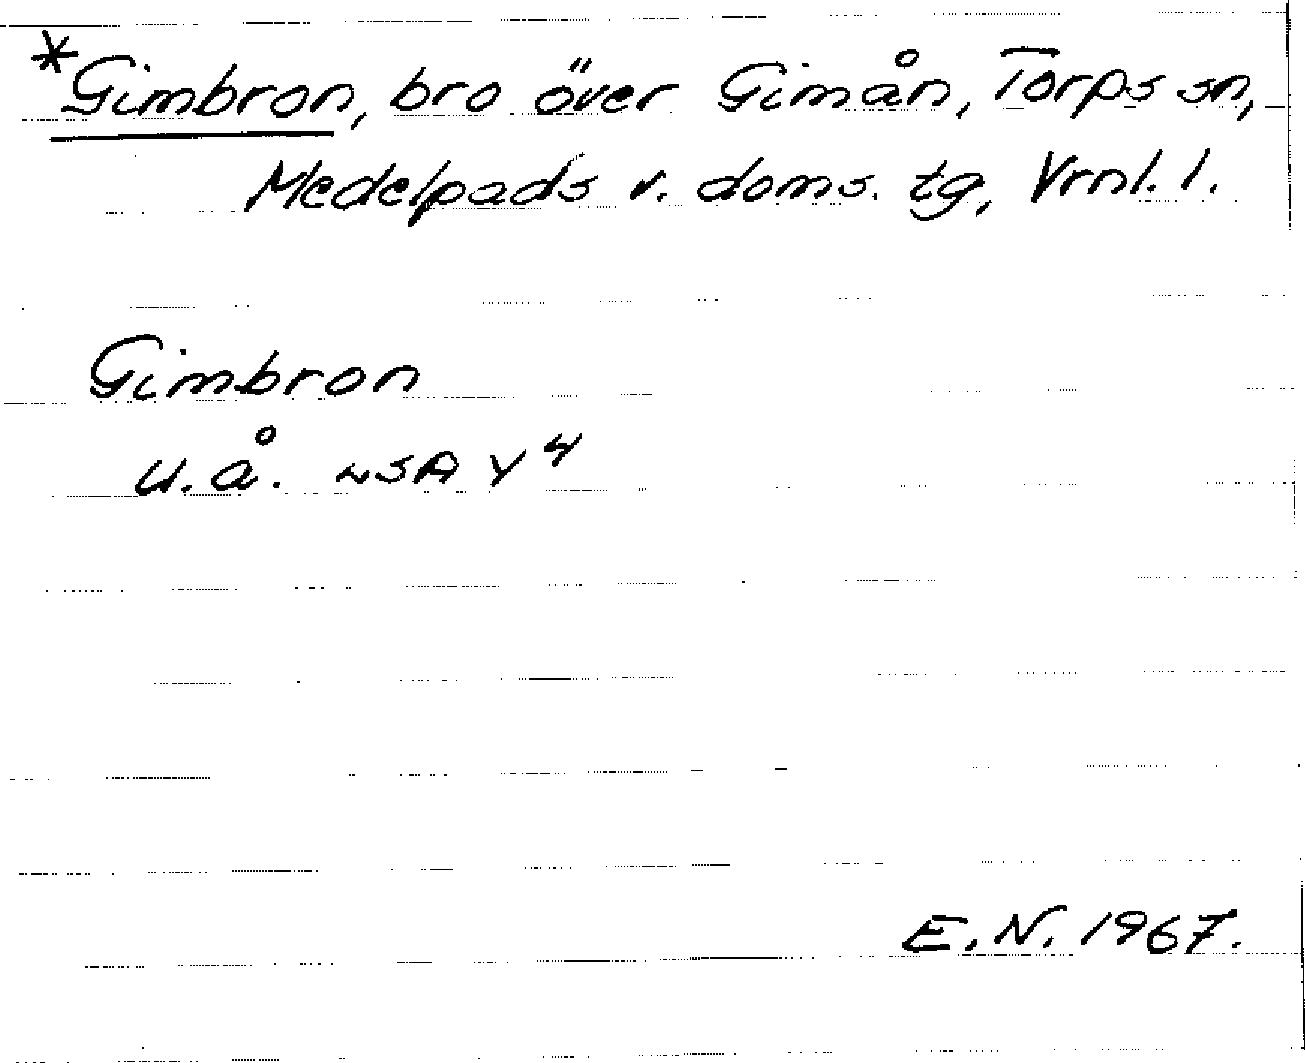 *Gimbron, bro över Gimån, Torps sn,
Medelpads v. doms. tg, Vrnl. l.
Gimbron
u.å. LSA Y 4
E.N. 1967.